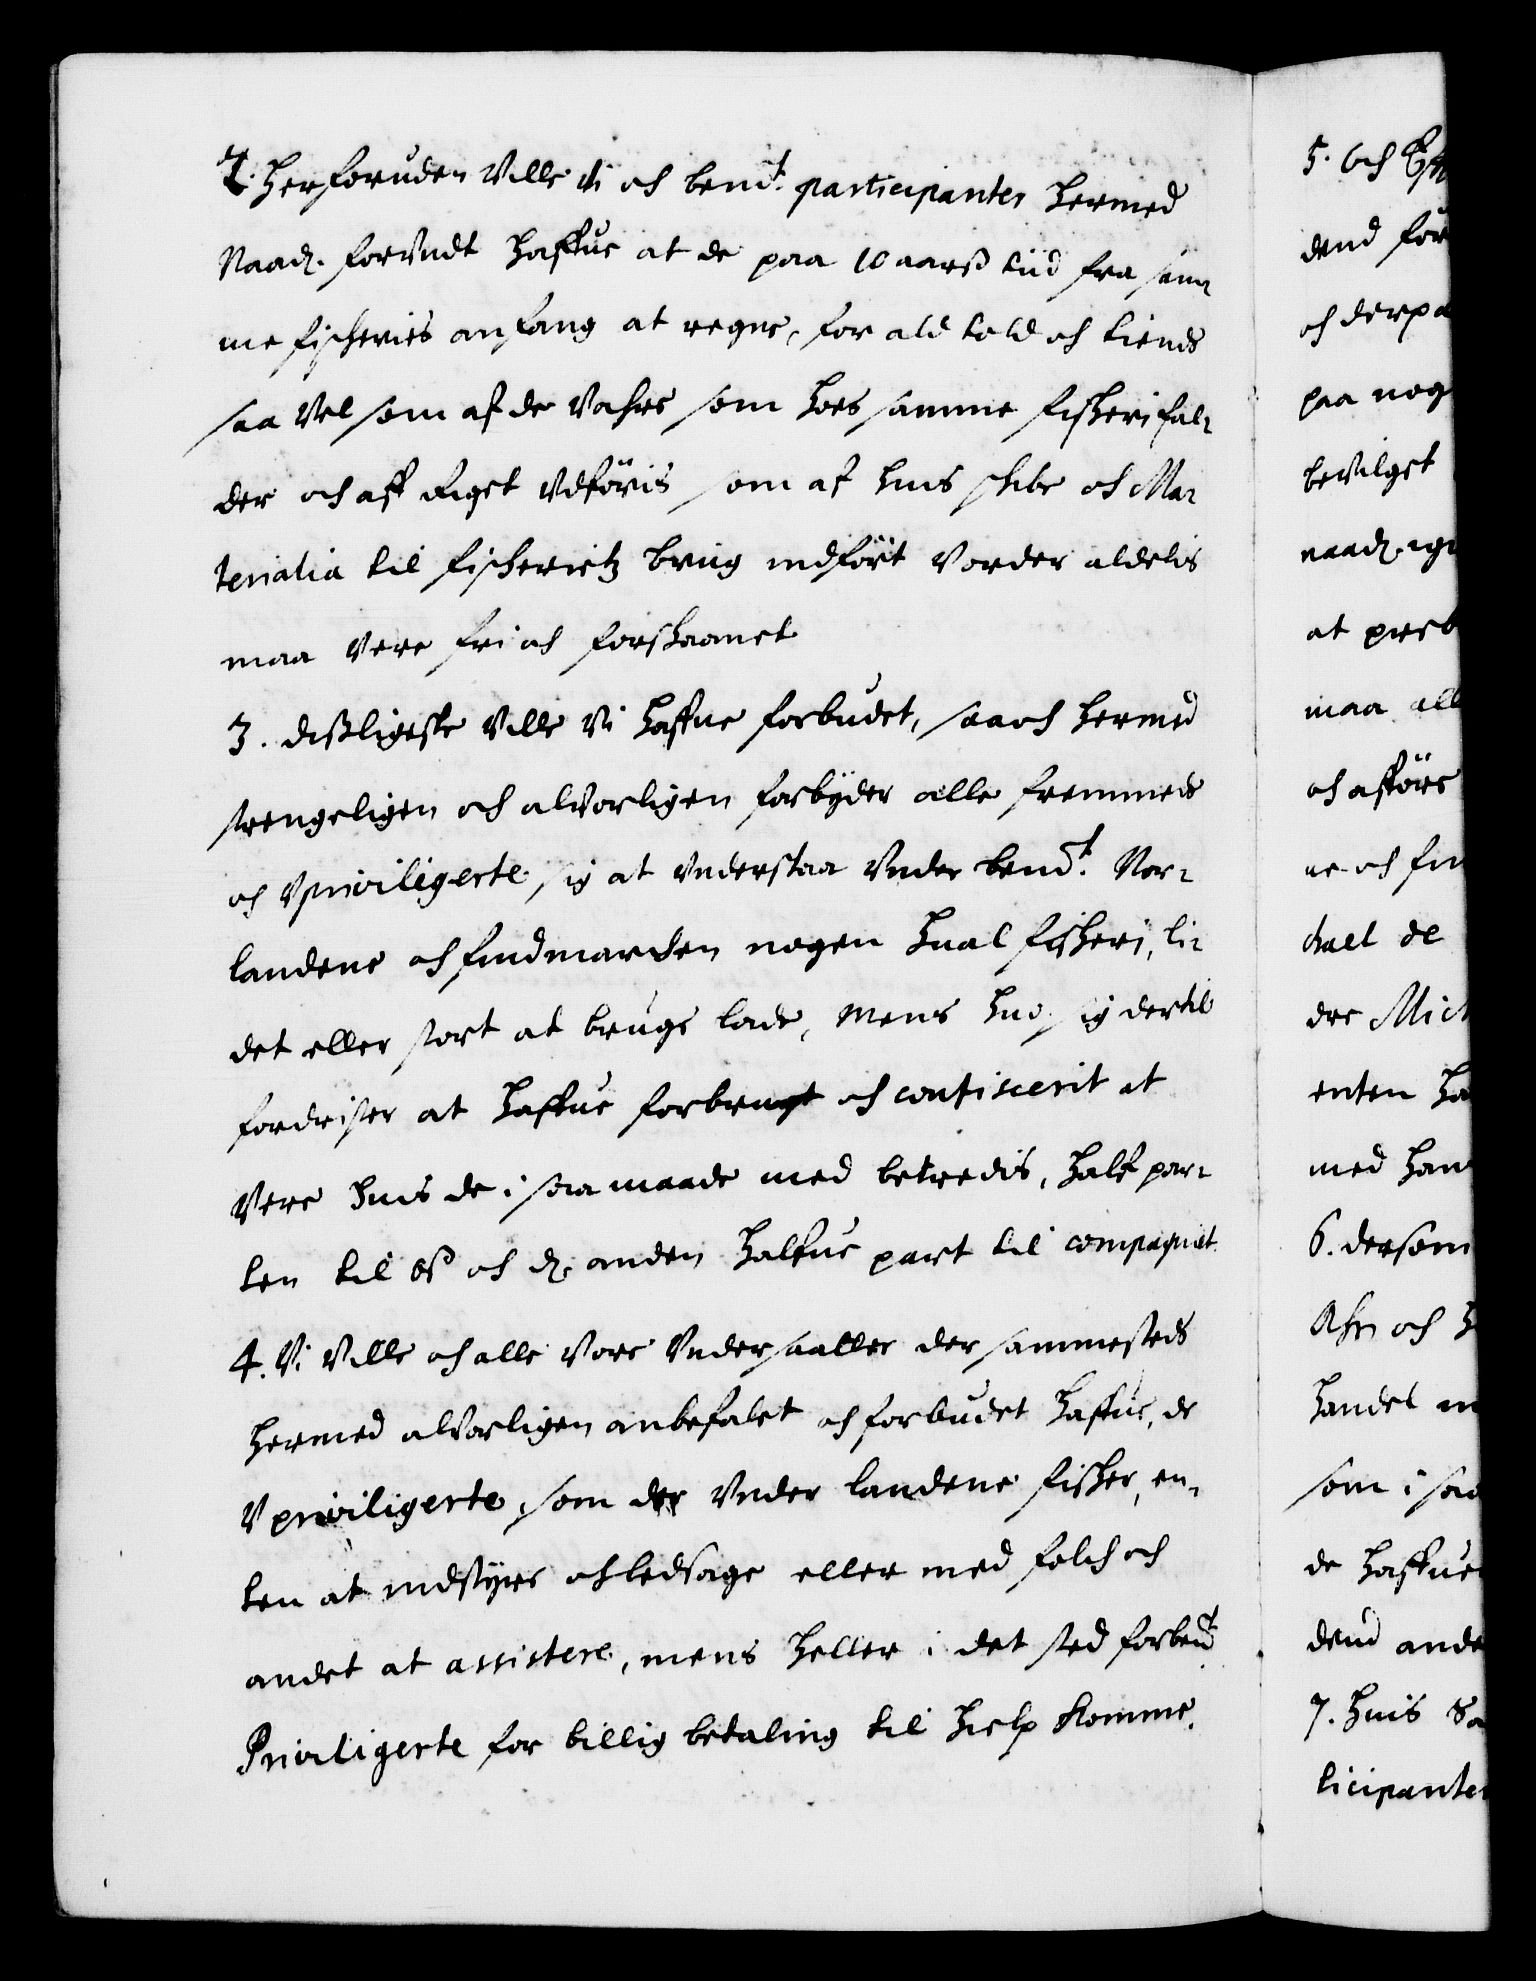 2. Herforuden Ville Vi och bemt. participanter Hermed
Naad. forundt Haffue at de paa 10 aarß tiid fra sam¬
me fischeries anfang at regne, for ald told och tiende
saa Vel som af de Vahre som hoes samme fischeri fal¬
der och aff Riget Vdföris som af huis schibe och Ma¬
terialia til fischerietz brug indfört Vorder aldelis
maa Vere fri och forskaanet
3. dißligeste Ville Vi Haffue forbudet, saa och hermed
strengeligen och alvorligen forbyder alle fremmede
och Vpriviligerte sig at Vnderstaa Vnder bemt. Nor¬
landene och findmarchen nogen Hual fischeri, li¬
det eller stort at bruge lade, Mens huo sig dertil
fordrister at Haffue forbrugt och confiscerit at
Vere huis de i saa maade med betredis, Halfpar¬
ten til oß och d. anden Halfue part til compagniet
4. Vi Ville och alle Vore Vndersaatter der sammesteds
Hermed alvorligen anbefalet och forbudet Haffue, de
Vpriviligerte, som der Vnder landene fischer, en¬
ten at indstyre och ledsage eller med folch och
andet at assistere, mens heller i det sted forbemt
Priviligerte for billig betaling til hielp komme.
5. Och Eff
dend för
och derpa
paa nog
beVilget
naad. ig
at preb
maa all
och afföre
ne och fin
huel de
dre Mich
enten Ha
med han
6. dersom
och H
Handel m
som i saa
de Haffue
dend ande
7. Huis Sa
ticipanter